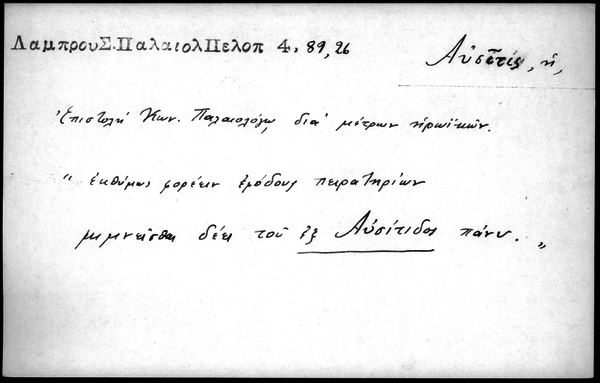 ΛαμπρουΣ.ΠαλαιολΠελοπ 4, 89, 26
Αὐσῖτις, ἡ,
Ἐπιστολή Κων. Παλαιολόγῳ, διά μέτρων ἡρωϊκῶν.
“ ἐκθύμως φορέειν ἐφόδους πειρατηρίων
μιμνεῖσθαι δέει τοῦ ἐξ Αὐσίτιδος πάνυ. „